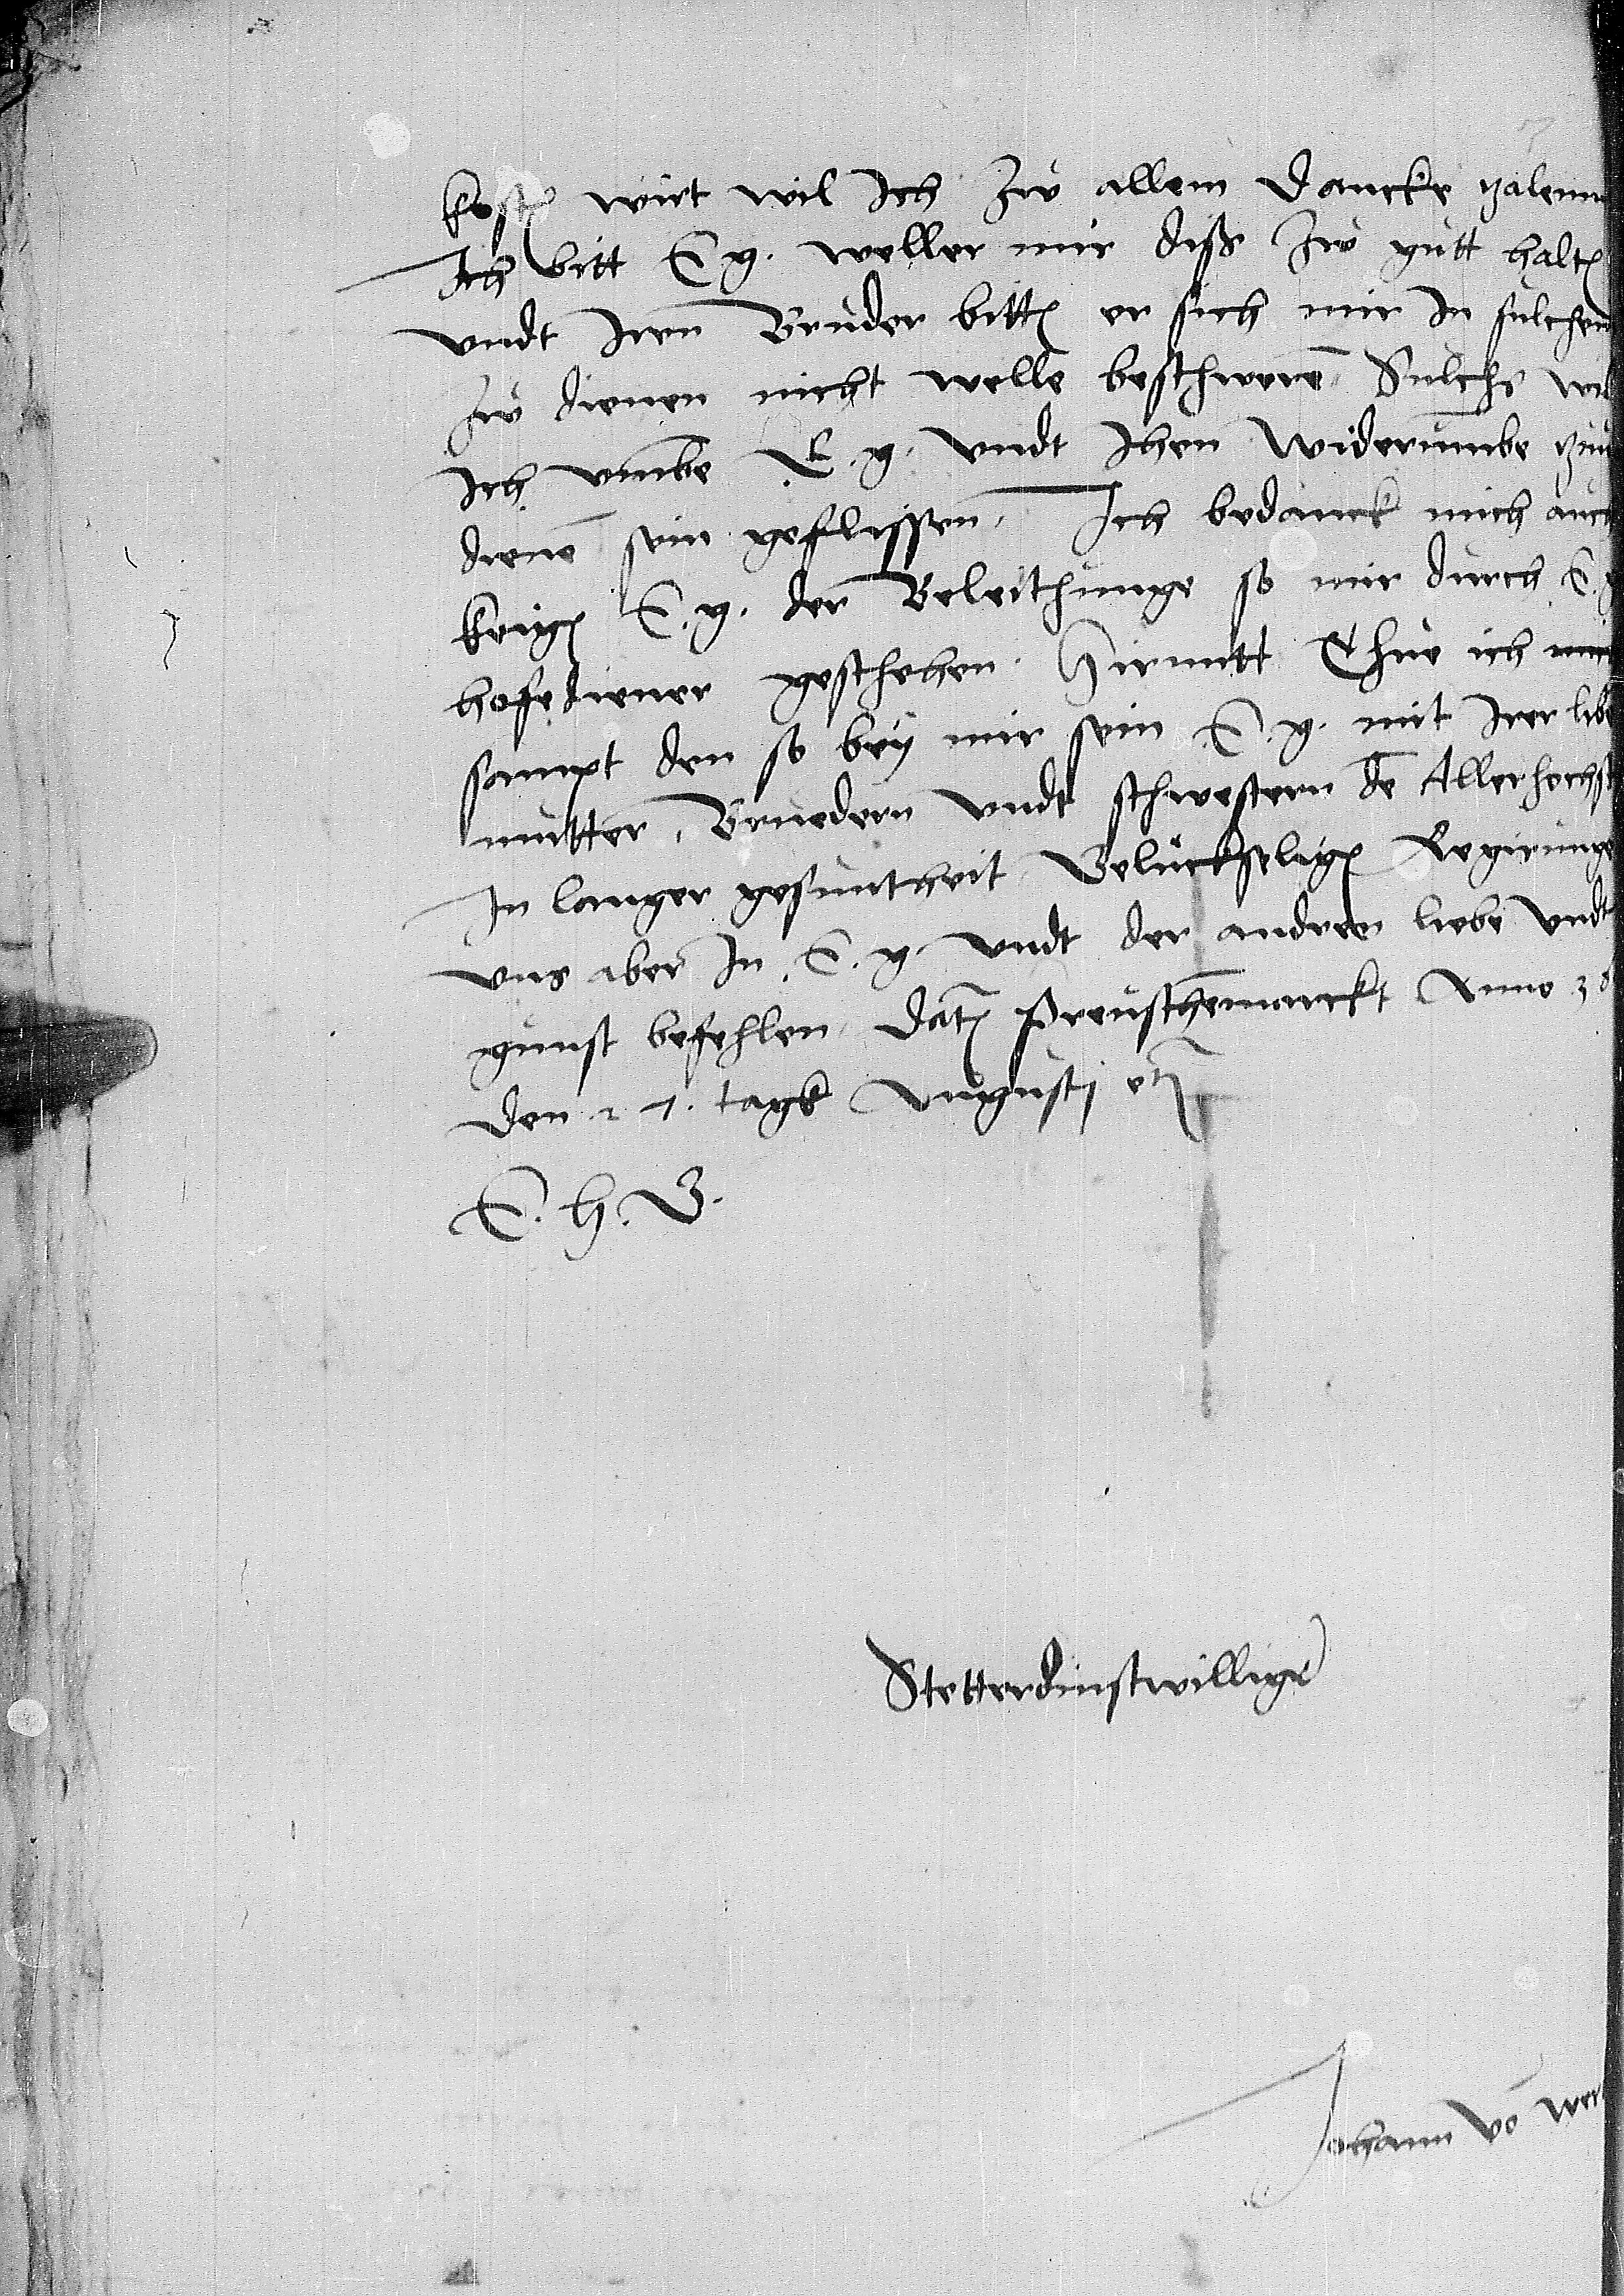 kostn wirt wil Ich Zw allem dancke zalenn
Ich bitt E g. weller mir diß Zw gutt haltn
vndt Iren Bruder bittn er sich mir In sulchen
Zw dienen nicht welle beschweren Sulchs wil
Ich vmbe E. g. vndt Ihen widerumbe zu
dienen sein geflissen, Ich bedanck mich auch
kegn E. g. der Beleithunge so mir durch E. g
hofediener geschehen. Hirmitt Thue ich mich
sampt den so bey mir sein E. g. mit Irer libe
mutter, Bruedern vndt schwestern de Allerhochst
In langer gesuntheit Gelückseligen Regirunge
vns aber In E. g. vndt der andren liebe vndt
gunst befehlen, datn Preuschemarckt Anno 38
den 27. tagk Augustj etc
E. h. G.
Stetterdinstwilliger
Johann vo Wer